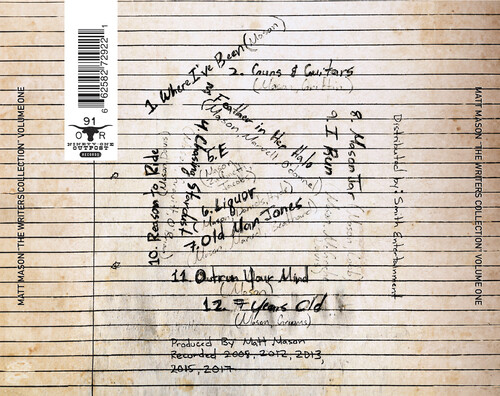 MATT MASON 'THE WRITERS COLLECTION' VOLUME ONE
6 62582 72922 1
91
O R
NINETY-ONE
OUTPOST
RECORDS
1. Where I've Been (Mason)
2. Guns & Guitars
(Mason, Griffin)
3. Feather in Her Halo
(Mason, Marcell O'Donnell)
4. Chasing Stardust
5. E
6. Liquor
7. Old Man Jones
8. Mason Jar
9. I Run
10. Reason To Ride
11. Outrun Your Mind
(Mason)
12. 7 Years Old
(Mason,
Produced By Matt Mason
Recorded 2009, 2012, 2013,
2015, 2017
Distributed by: Smith Entertainment
MATT MASON 'THE WRITERS COLLECTION' VOLUME ONE